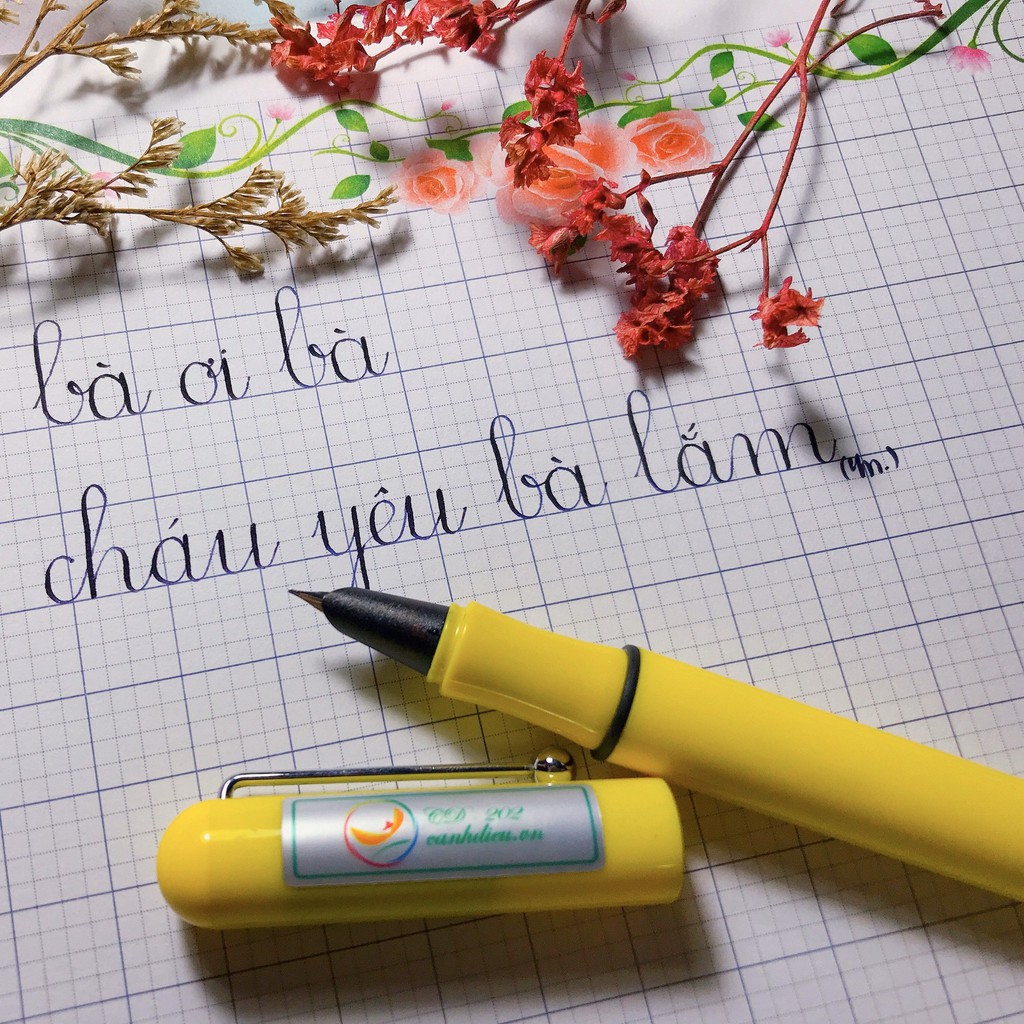 bà ơi bà
cháu yêu bà lắm
CD - 202
canhdieu.vn